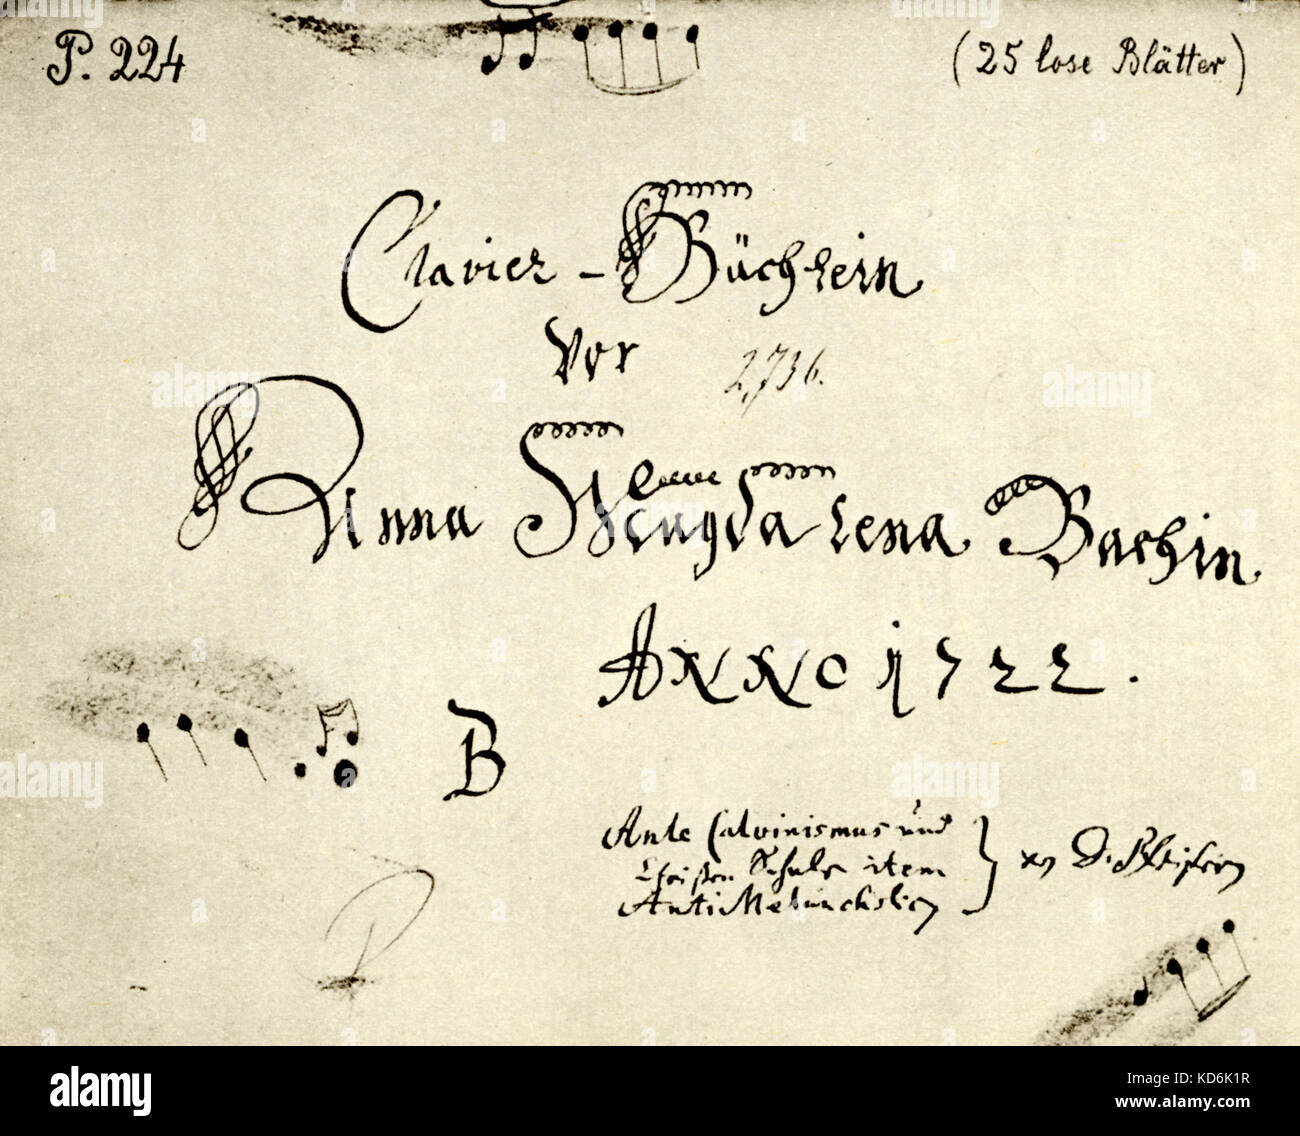 P. 224
(25 lose Blätter)
Clavier-Büchlein
vor
2,736.
Anna Magdalena Bachin
ANNO 1722.
B
Ante Calvinismus und
Christen Schule item
AntiMelancholicg
D. Pfeifern
alamy
Image ID: KD6K1R
www.alamy.com